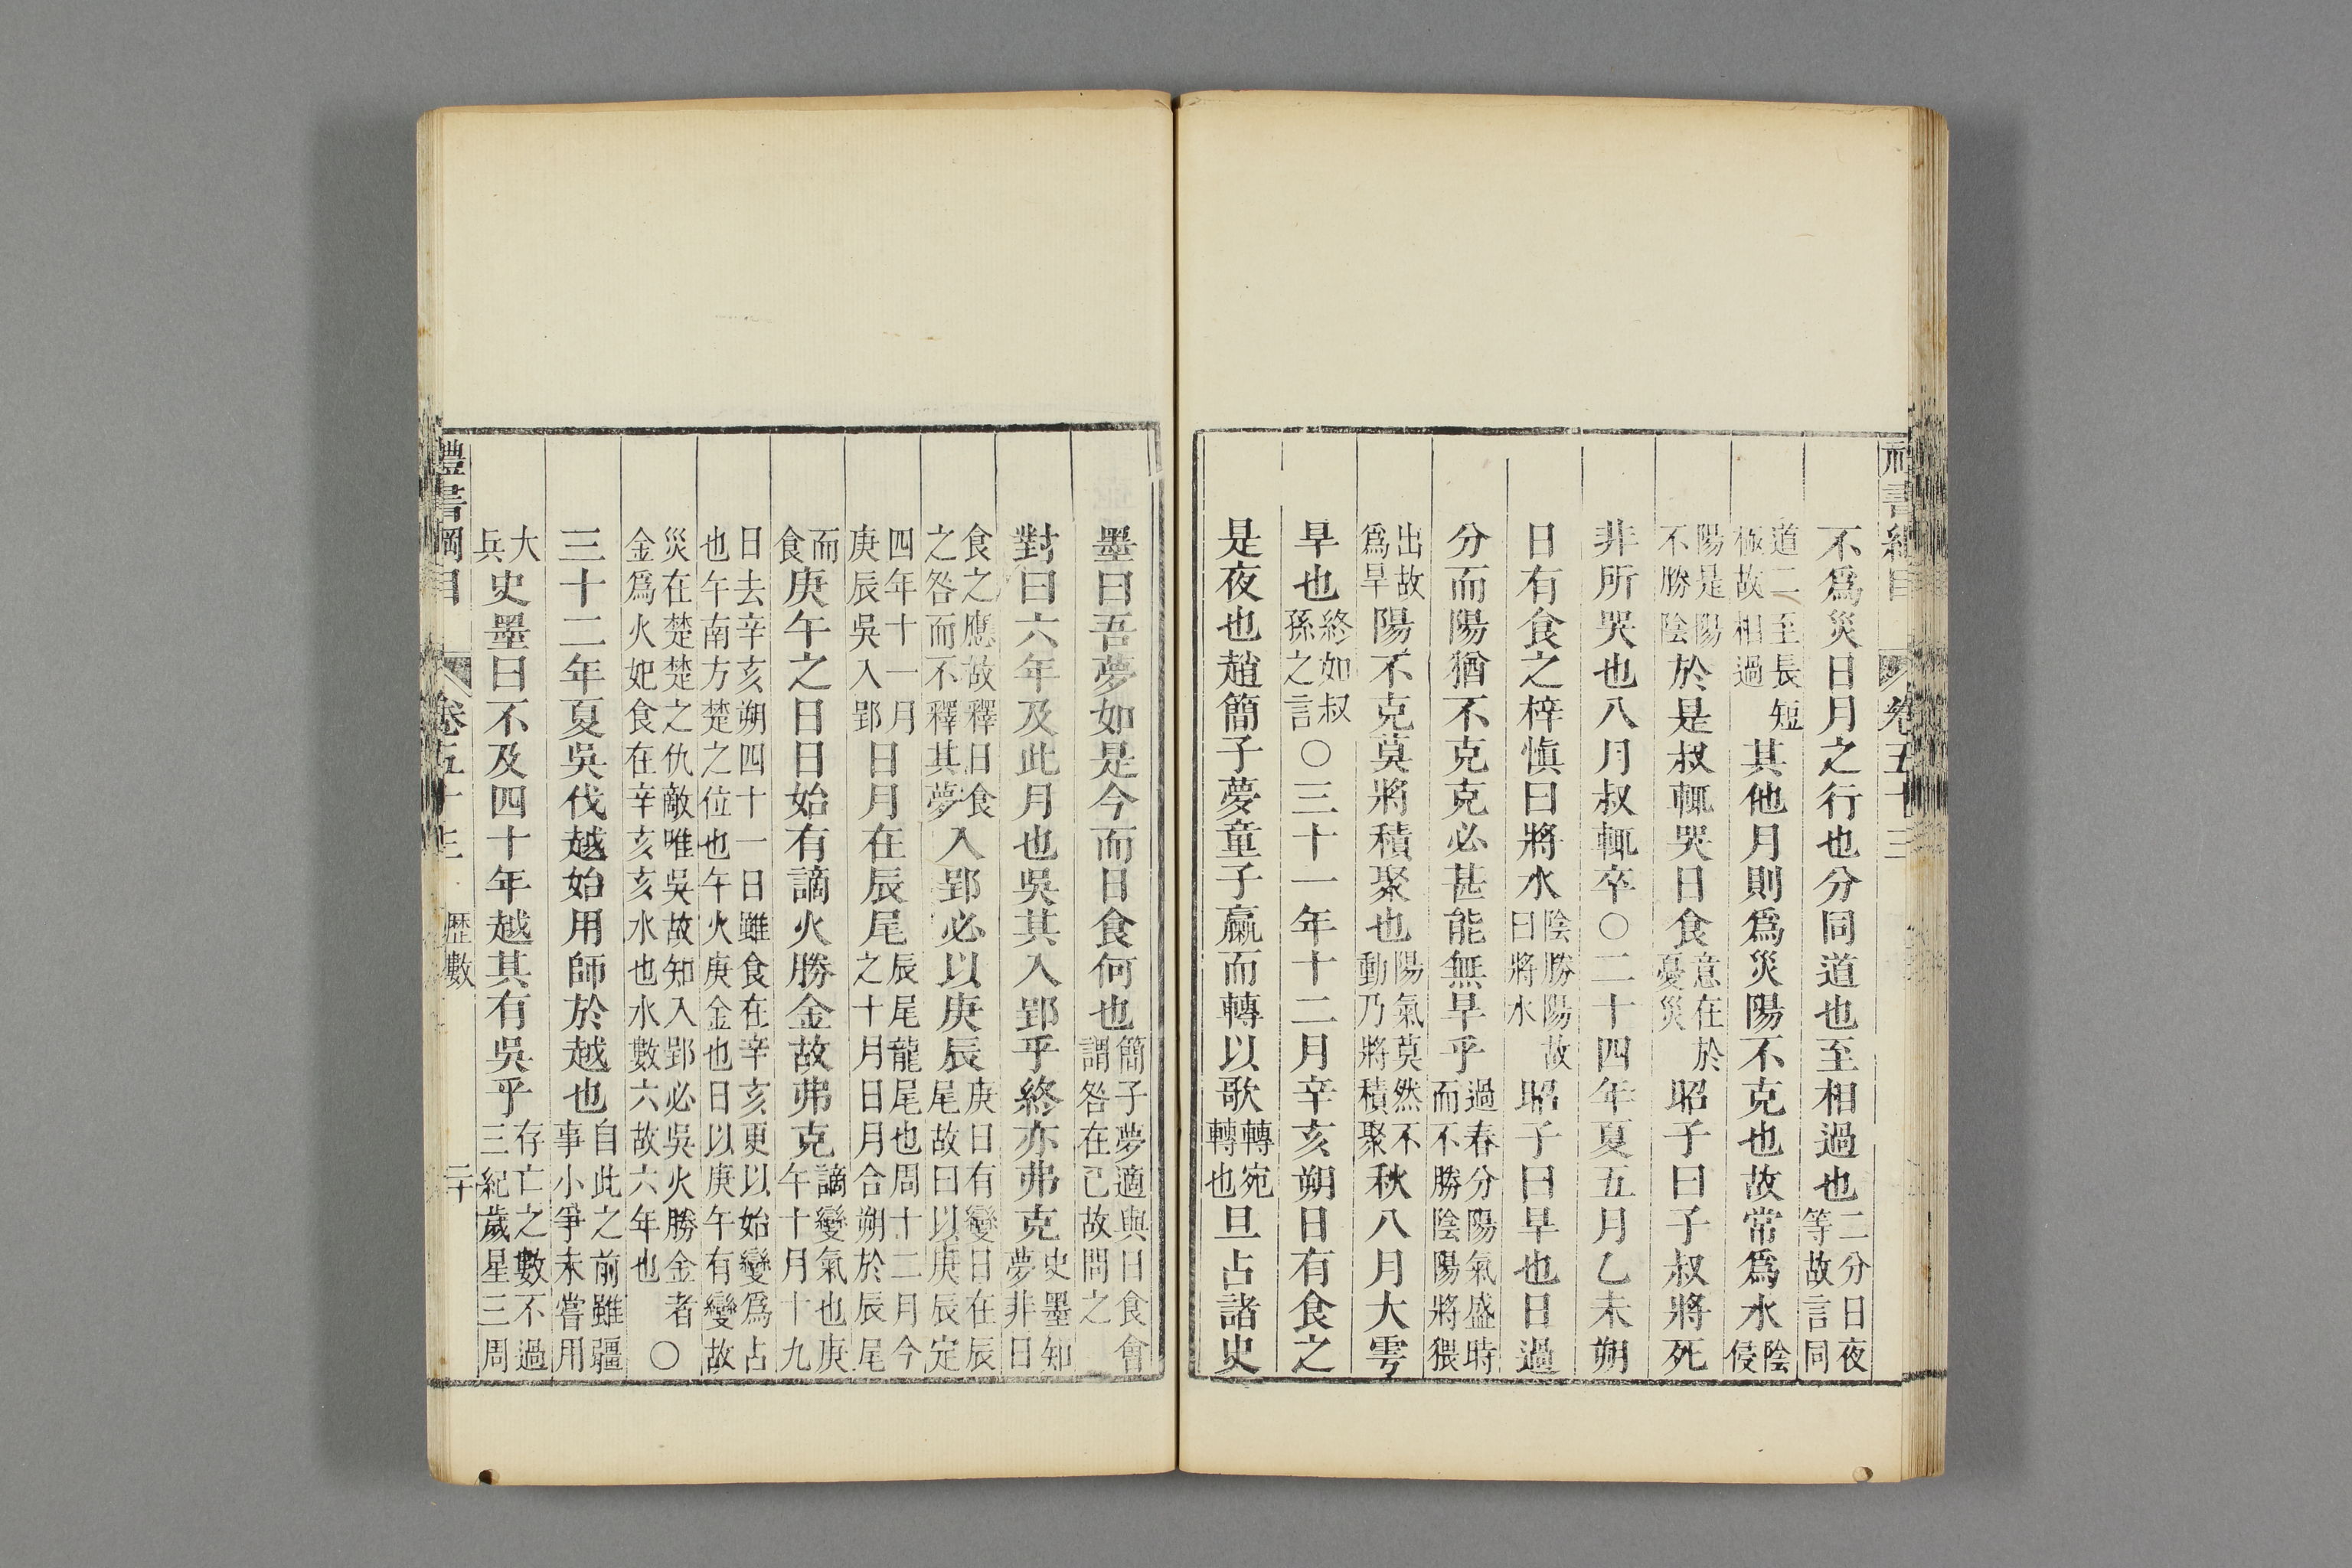 禮書綱目 卷五十三
不爲災日月之行也分同道也至相過也二分日夜等故言同
道二至長短極故相過其他月則爲災陽不克也故常爲水陰侵
陽是陽不勝陰於是叔輒哭日食意在於憂災昭子曰子叔將死
非所哭也八月叔輒卒○二十四年夏五月乙未朔
日有食之梓慎曰將水陰勝陽故曰將水昭子曰旱也日過
分而陽猶不克克必甚能無旱乎過春分陽氣盛時而不勝陰陽將猥
出故爲旱陽不克莫將積聚也陽氣莫然不動乃將積聚秋八月大雩
旱也終如叔孫之言○三十一年十二月辛亥朔日有食之
是夜也趙簡子夢童子臝而轉以歌轉宛轉也旦占諸史
墨曰吾夢如是今而日食何也簡子夢適與日食會謂咎在己故問之
對曰六年及此月也吳其入郢乎終亦弗克史墨知夢非日
食之應故釋日食之咎而不釋其夢入郢必以庚辰庚日有變日在辰尾故曰以庚辰定
四年十一月庚辰吳入郢日月在辰尾辰尾龍尾也周十二月今之十月日月合朔於辰尾
而食庚午之日日始有謫火勝金故弗克謫變氣也庚午十月十九
日去辛亥朔四十一日雖食在辛亥更以始變爲占也午南方楚之位也午火庚金也日以庚午有變故
災在楚楚之仇敵唯吳故知入郢必吳火勝金者金爲火妃食在辛亥亥水也水數六故六年也○
三十二年夏吳伐越始用師於越也自此之前雖疆事小爭未嘗用
大兵史墨曰不及四十年越其有吳乎存亡之數不過三紀歲星三周
禮書綱目 卷五十三 歷數 二十